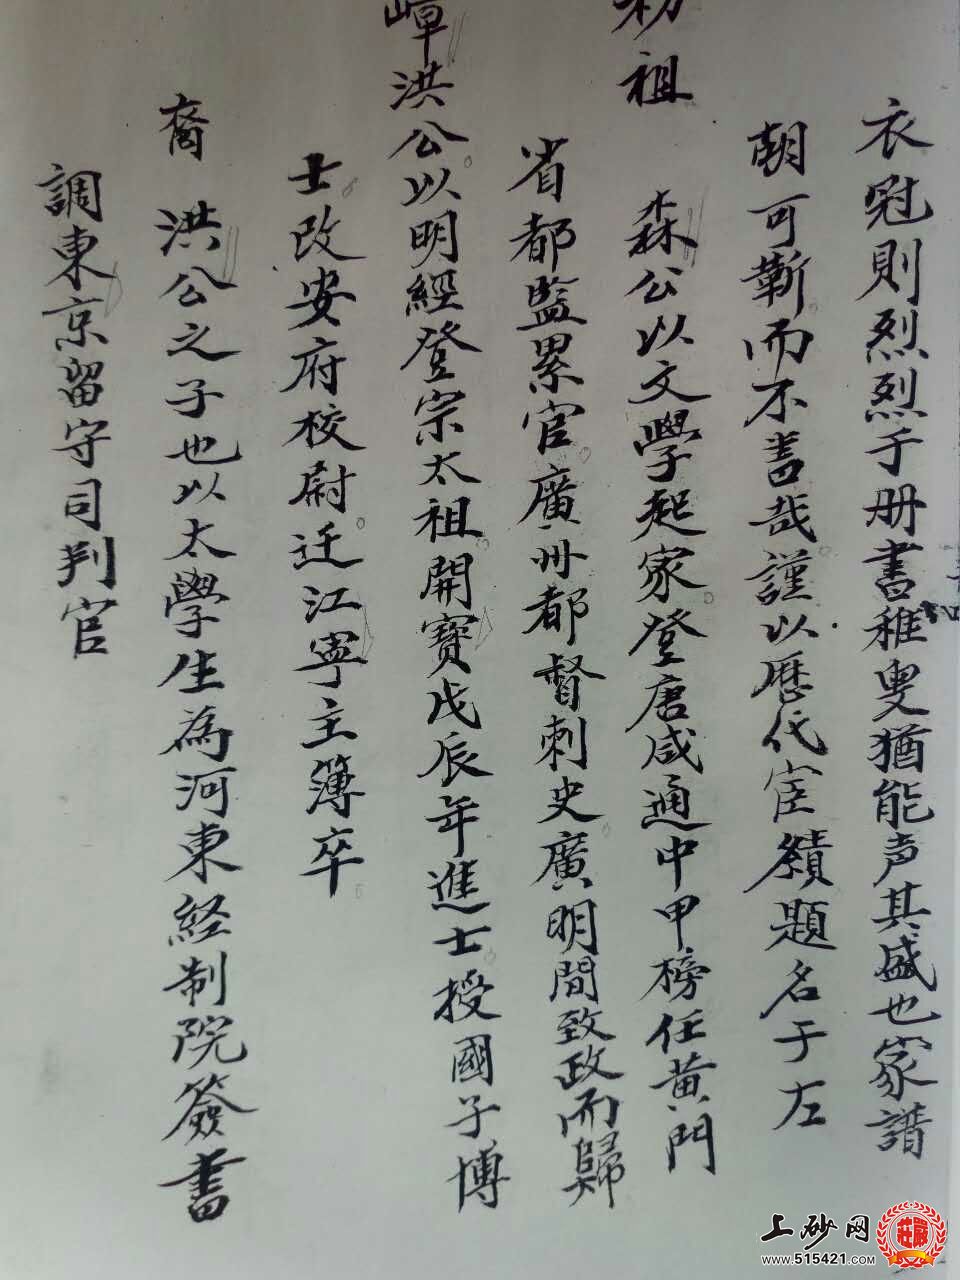 衣冠則烈烈于册書稚叟猶能声其盛也家譜
朝可靳而不書哉謹以歷代宦績題名于左
初祖 森公以文學起家登唐咸通中甲榜任黄門
省都監累官廣州都督刺史廣明間致政而歸
嶂洪公以明經登宗太祖開寶戊辰年進士授國子博
士改安府校尉迁江寧主簿卒
裔 洪公之子也以太學生為河東经制院簽書
調東京留守司判官
上砂网
www.515421.com